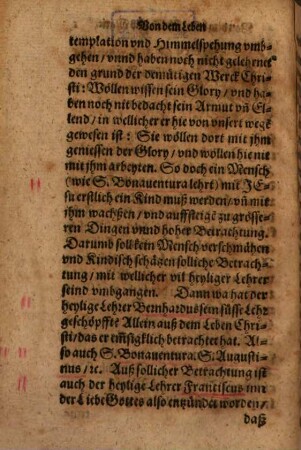 Von dem Leben
templation vnd Himmelspehung vmb-
gehen / vnnd haben noch nicht gelehrnet
den grund der demütigen Werck Chri-
sti: Wöllen wissen sein Glory / vnd ha-
ben noch nit bedacht sein Armut vñ El-
lend / in wellicher er hie von vnsert wegẽ
gewesen ist: Sie wöllen dort mit jhm
geniessen der Glory / vnd wöllen hie nit
mit jhm arbeyten. So doch ein Mensch
(wie S. Bonauentura lehrt) mit JE-
su erstlich ein Kind muß werden / vñ mit
jhm wachßen / vnd auffsteigẽ zu grösse-
ren Dingen vnnd hoher Betrachtung.
Darumb soll kein Mensch verschmähen
vnd Kindisch schägen solliche Betrach-
tung / mit wellicher vil heyliger Lehrer
seind vmbgangen. Dann wa hat der
heylige Lehrer Bernhardus sein süsse Lehr
geschöpfft? Allein auß dem Leben Chri-
sti / das er emsigklich betrachtet hat. Al-
so auch S. Bonauentura. S. Augusti-
nus / rc. Auß sollicher Betrachtung ist
auch der heylige Lehrer Franciscus inn
der Liebe Gottes also entzündet worden /
daß